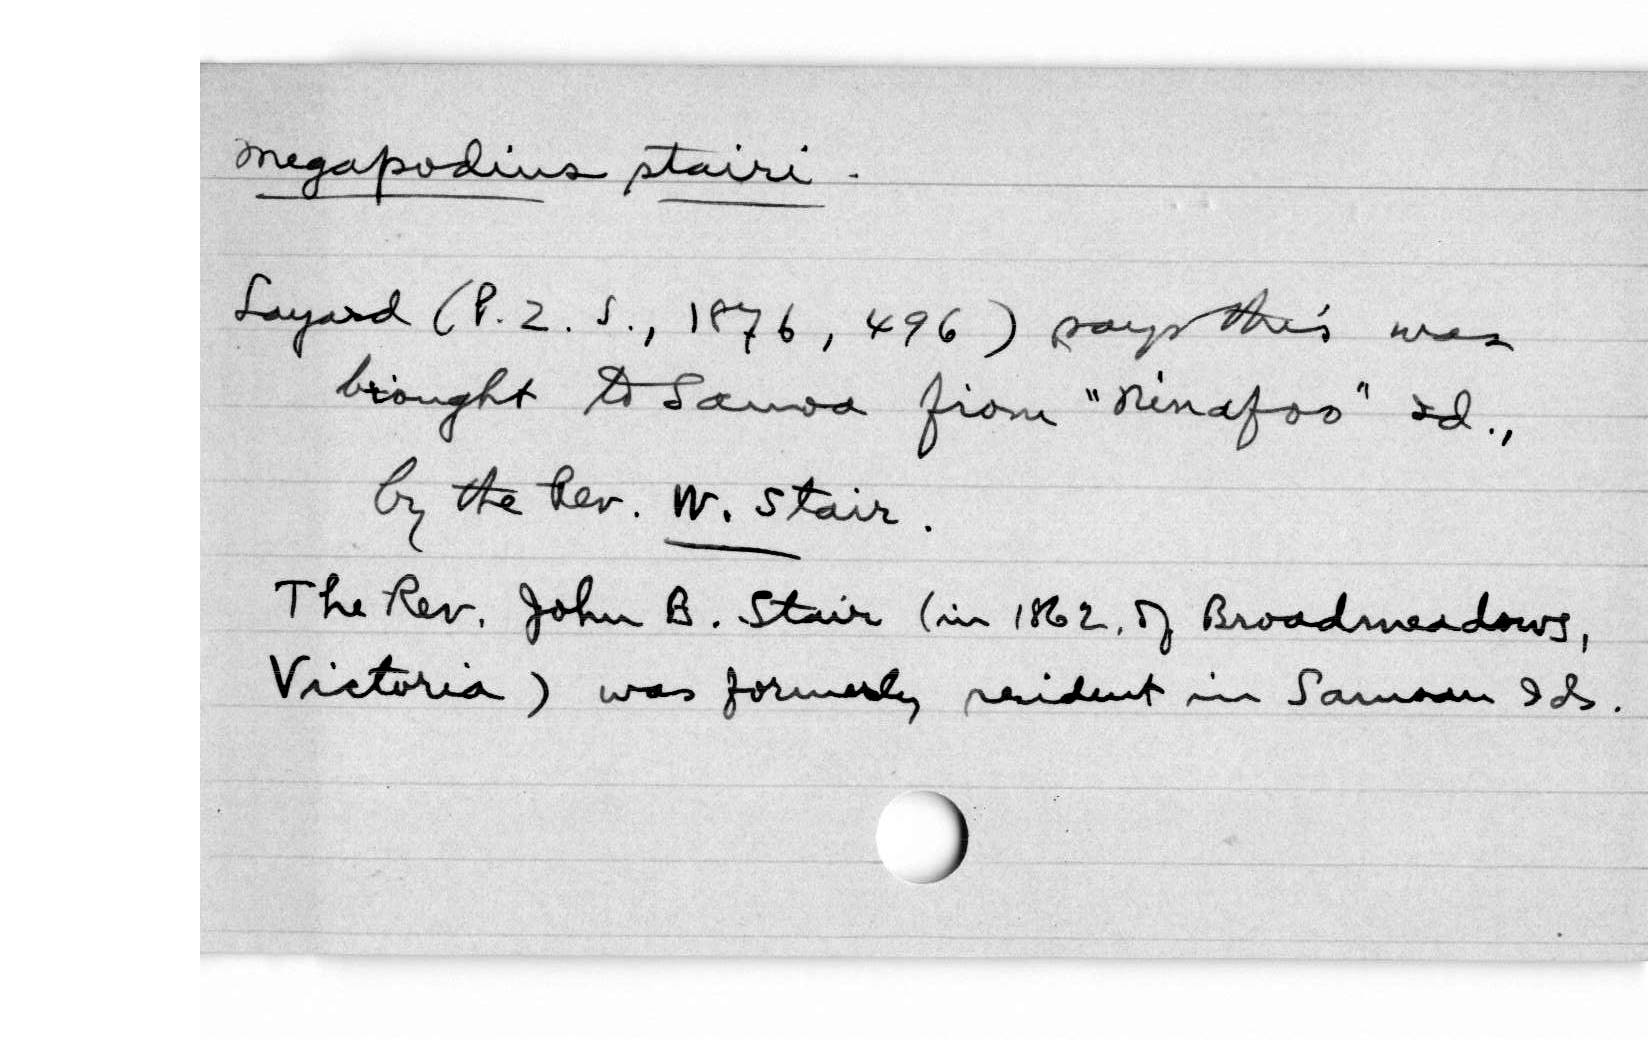 Megapodius stairi.
Layard (P.Z.S., 1876, 496) says this was
brought to Samoa from "Ninafoo" Id.,
by the Rev. W. Stair.
The Rev. John B. Stair (in 1862, of Broadmeadows,
Victoria) was formerly resident in Samoan Ids.